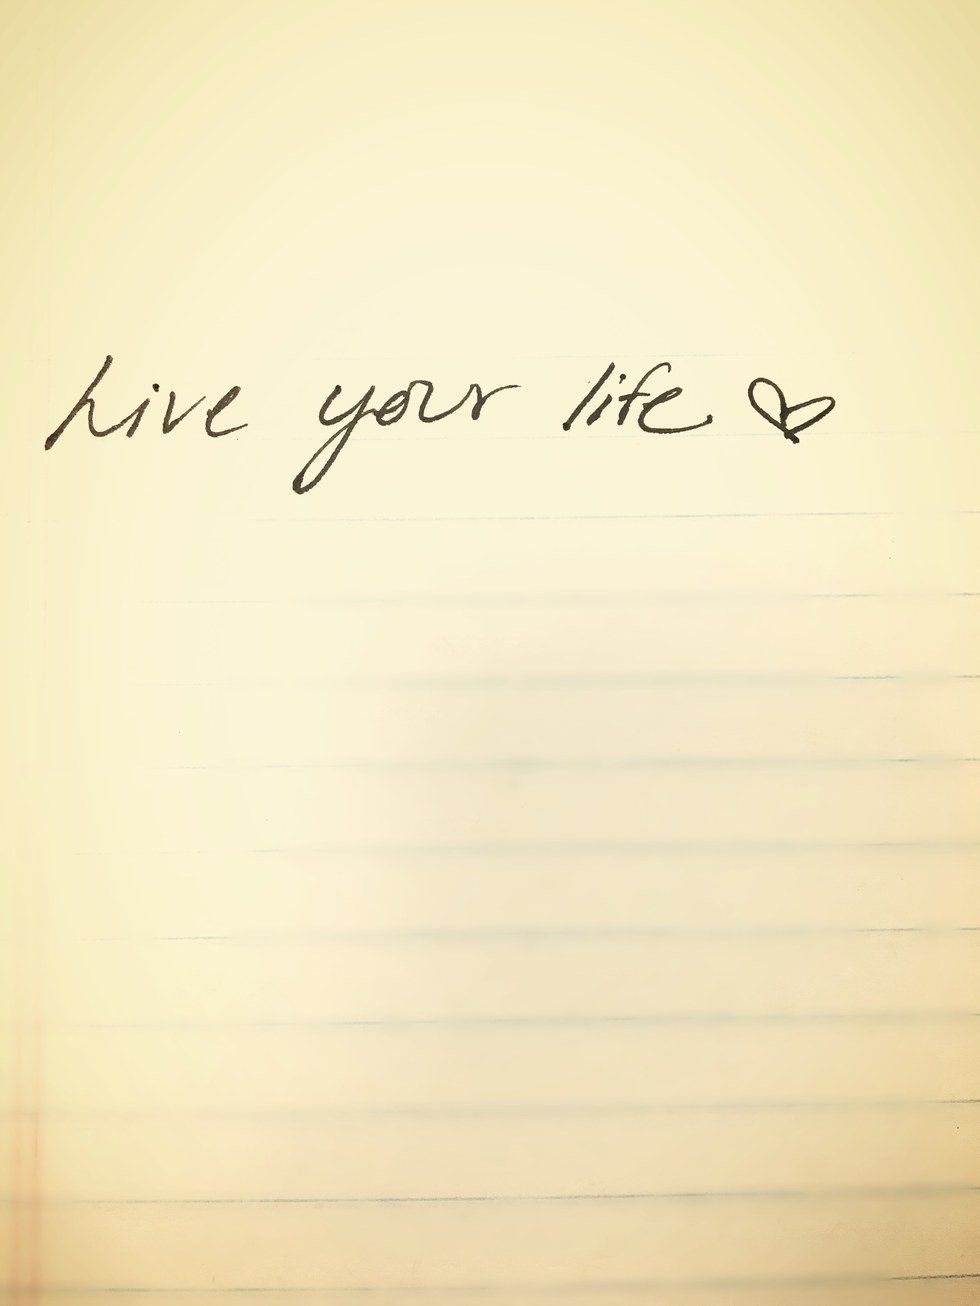 Live your life ♡